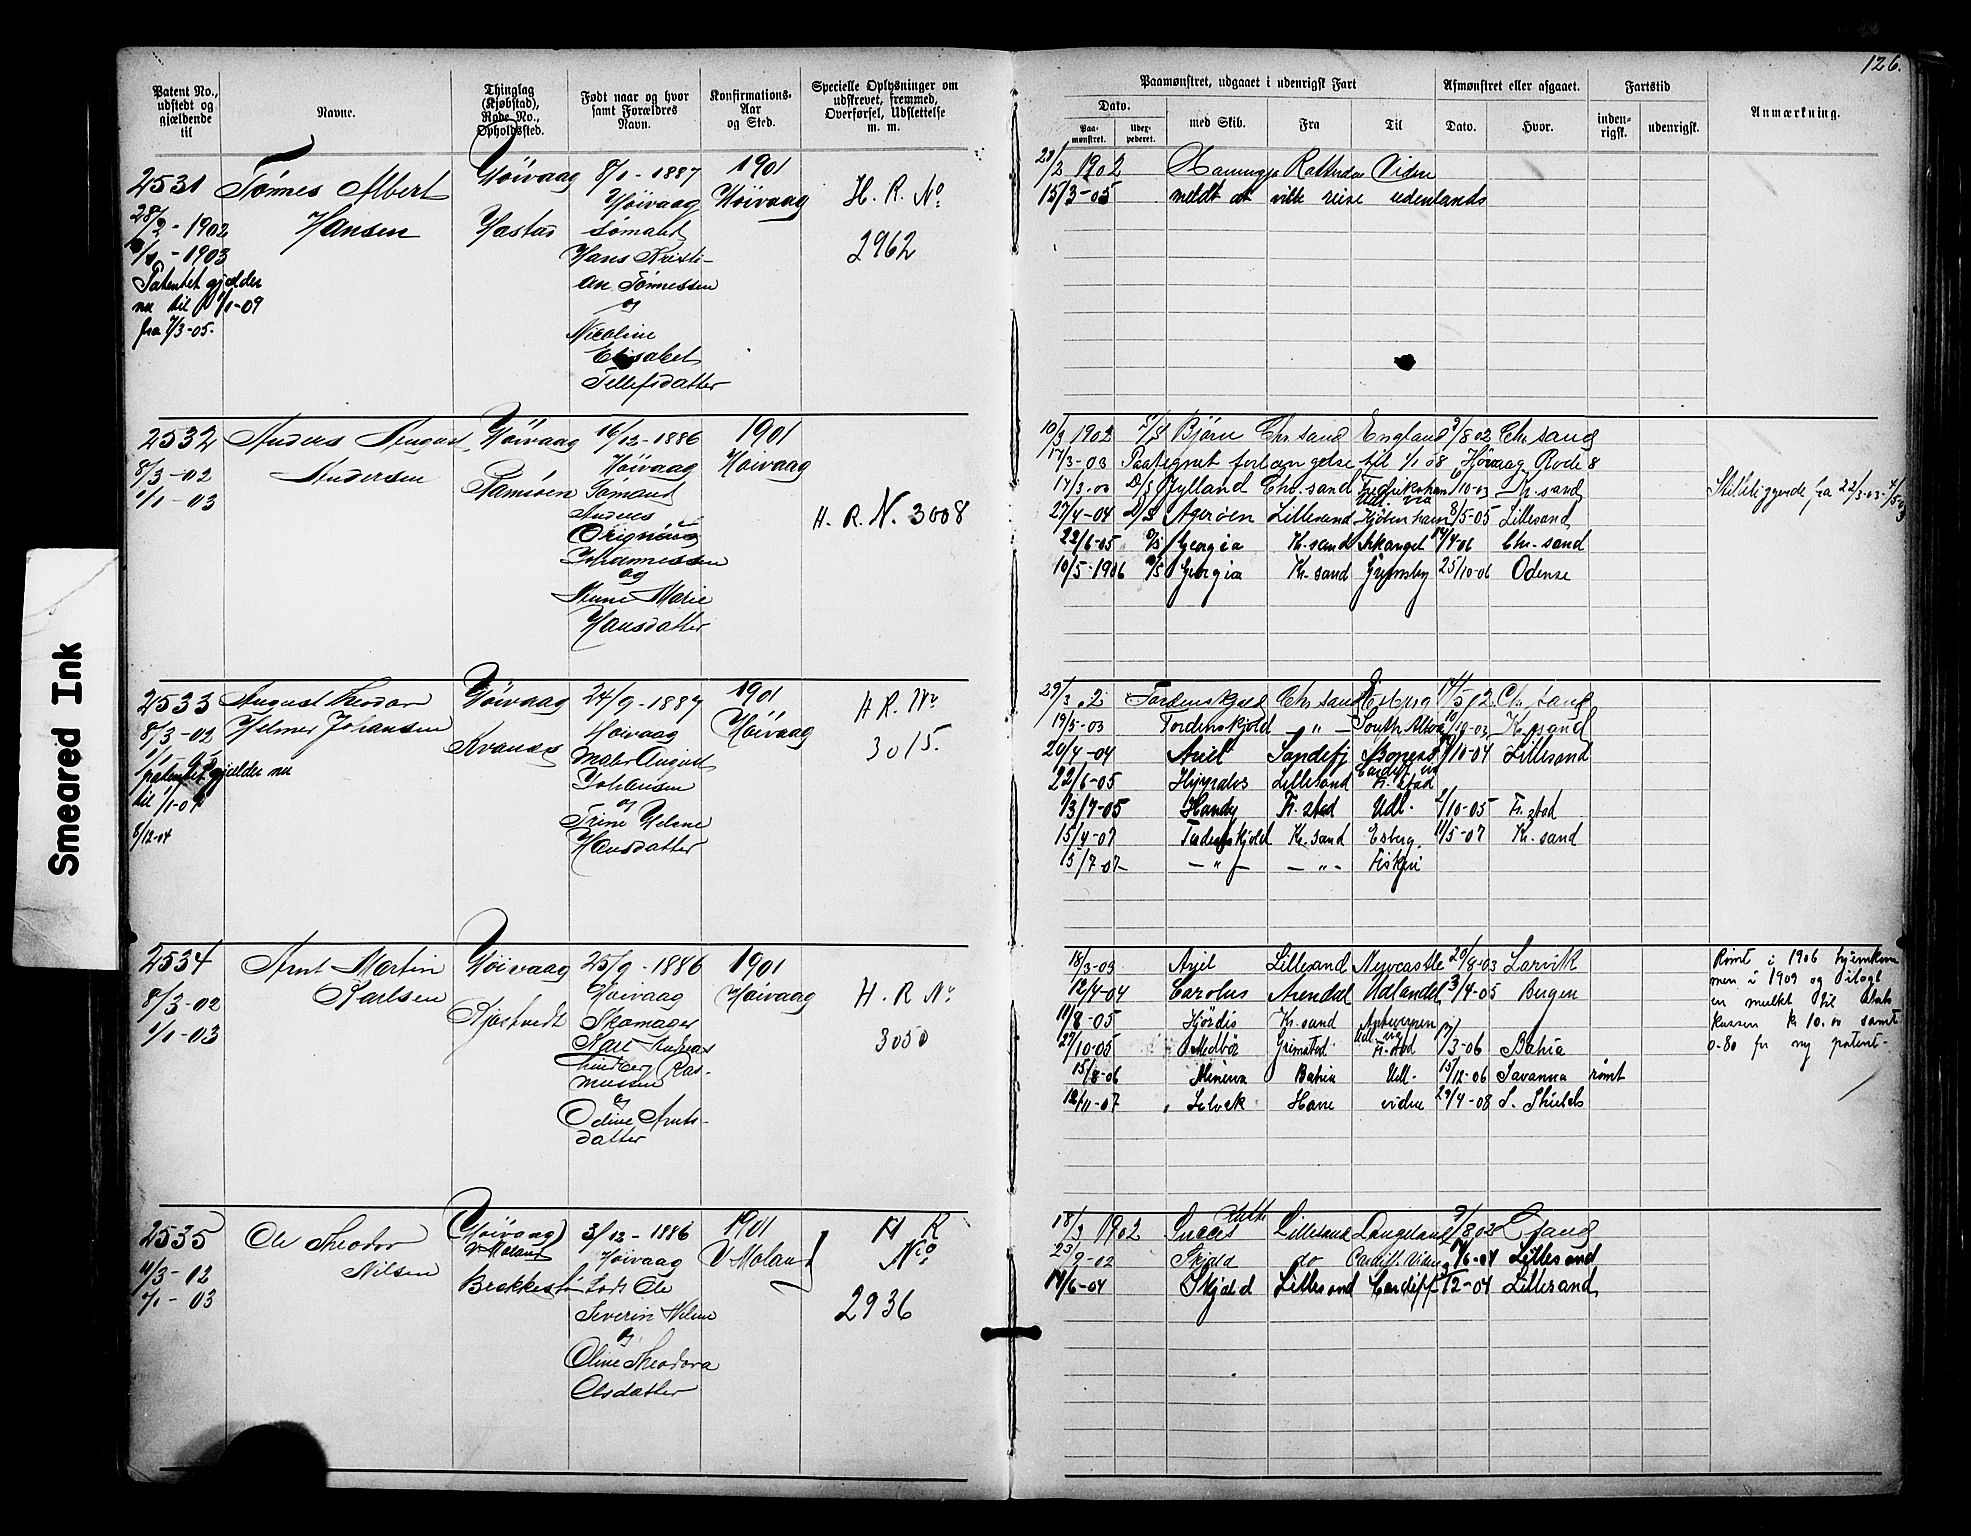 126.
Patent No., udstedt og gjældende til
Navne.
Thinglag (Kjøbstad), Rode No., Opholdssted.
Født naar og hvor samt Forældres Navn.
Konfirmations-Aar og Sted.
Specielle Oplysninger om udskrevet, fremmed, Overførsel, Udslettelse m. m.
Paamønstret, udgaaet i udenrigsk Fart
Dato.
Paamønstret.
med Skib.
Fra
Til
Afmønstret eller afgaaet.
Dato.
Hvor.
Fartstid
indenrigsk.
udenrigsk.
Anmærkning.
2531
28/2 - 1902
1/1 - 1903
Patentet gjælder
nu til 1/1-09
fra 7/3-05.
Tønnes Albert
Hansen
Høivaag
Hastad
8/1 - 1887
Høivaag
Sømand
Hans Kristi-
an Tønnessen
og
Nicoline
Elisabet
Tellefsdatter
1901
Høivaag
H. R. No.
2962
28/2 1902 Rotterdam Viden
15/3-05 meldt at ville reise udenlands
2532
8/3-02
1/1-03
Anders August
Andersen
Høivaag
16/12-1886
Høivaag
Sømand
Anders
Johannessen
og
Anne Marie
Hansdatter
1901
Høivaag
H. R. N. 3008
10/3 1902 Bjørn Chr sand England 3/8 02 Chr. sand
17/3-03 Paategnet forlængelse til 1/1 08 Høvaag Rode 8
17/3-03 D/S Jylland Chr. sand Fredrikshavn 6/10-03 Kr. sand
27/4-04 D/S Agerøen Lillesand Kjøbenhavn 8/5-05 Lillesand
22/6-05 Georgia Kr. sand Arkangel 14/4-06 Chr. sand
10/5-1906 Georgia Kr. sand Grimsby 25/10-06 Odense
Stilleliggende fra 22/3-03-4/5-03
2533
8/3-02
patentet gjælder nu
til 1/1-07
8/12-04
August Theodor
Helmer Johansen
Høivaag
Kvanes
24/9-1887
Høivaag
Maler August
Johansen
og
Trine Helene
Hansdatter
1901
Høivaag
H R. No.
3015.
29/3 02 Tordenskjold Chr sand Esberg 14/5 02 Chr sand
19/5-03 Tordenskjold - " - South Alloa 10/10-03 Kr. sand
20/4-04 Ariel Sandefj Boness 9/10-04 Lillesand
22/6-05 Lillesand Cardiff via Fr. stad
13/7-05 Handy Fr. stad Udl. 2/10-05 Fr. stad
15/4-07 Tordenskjold Kr. sand Esberg. 11/5-07 Kr. sand
15/7-07 - " - - " - Fiskeri
2534
8/3-02
1/1-03
Arnt Martin
Karlsen
Høivaag
Kjøstvedt
25/9-1886
Høivaag
Skomager
Karl Andreas
Lindberg Ras-
mussen
og
Odine Arnts-
datter
1901
Høivaag
H. R No.
3050
18/3-03 Ariel Lillesand Newcastle 20/8-03 Larvik
12/4-04 Carolus Arendal Udlandet 3/4-05 Bergen
11/8-05 Hjørdis Kr. sand Antwerpen
27/10-05 Medbør Grimstad Udl. via Fr. stad 17/3-06 Bahia
15/8-06 Minerva Bahia Udl. 15/12-06 Savanna rømt
12/11-07 Havre viden 29/4-08 S. Shields
Rømt i 1906 hjemkom
men i 1909 og ilagt
en mulkt til stats
kassen kr 10.00 samt
0-80 for ny patent.
2535
11/3-02
1/1-03
Ole Theodor
Nilsen
(Høivaag)
V. Moland
Brekkestø
3/12-1886
Høivaag
Lods Ole
Severin Nilsen
og
Oline Theodora
Olsdatter
1901
V Moland
H R
No
2936
18/3 1902 Succes Lillesand Langeland 9/8 02 Chr sand
23/9-02 Skjold do Cardiff Viden 1/6-04 Lillesand
14/6-04 Skjold Lillesand Cardiff 12-04 Lillesand
Smeared Ink